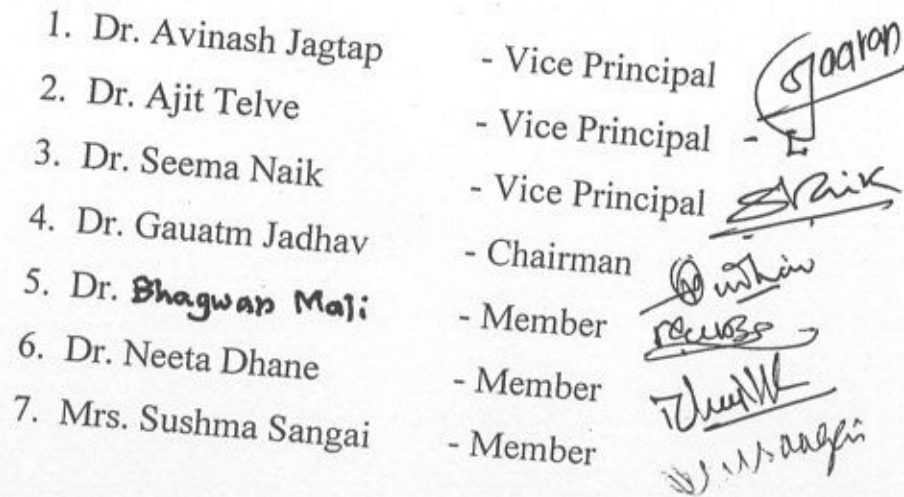 1. Dr. Avinash Jagtap - Vice Principal
2. Dr. Ajit Telve - Vice Principal -
3. Dr. Seema Naik - Vice Principal
4. Dr. Gauatm Jadhav - Chairman
5. Dr. Bhagwan Mali - Member
6. Dr. Neeta Dhane - Member
7. Mrs. Sushma Sangai - Member